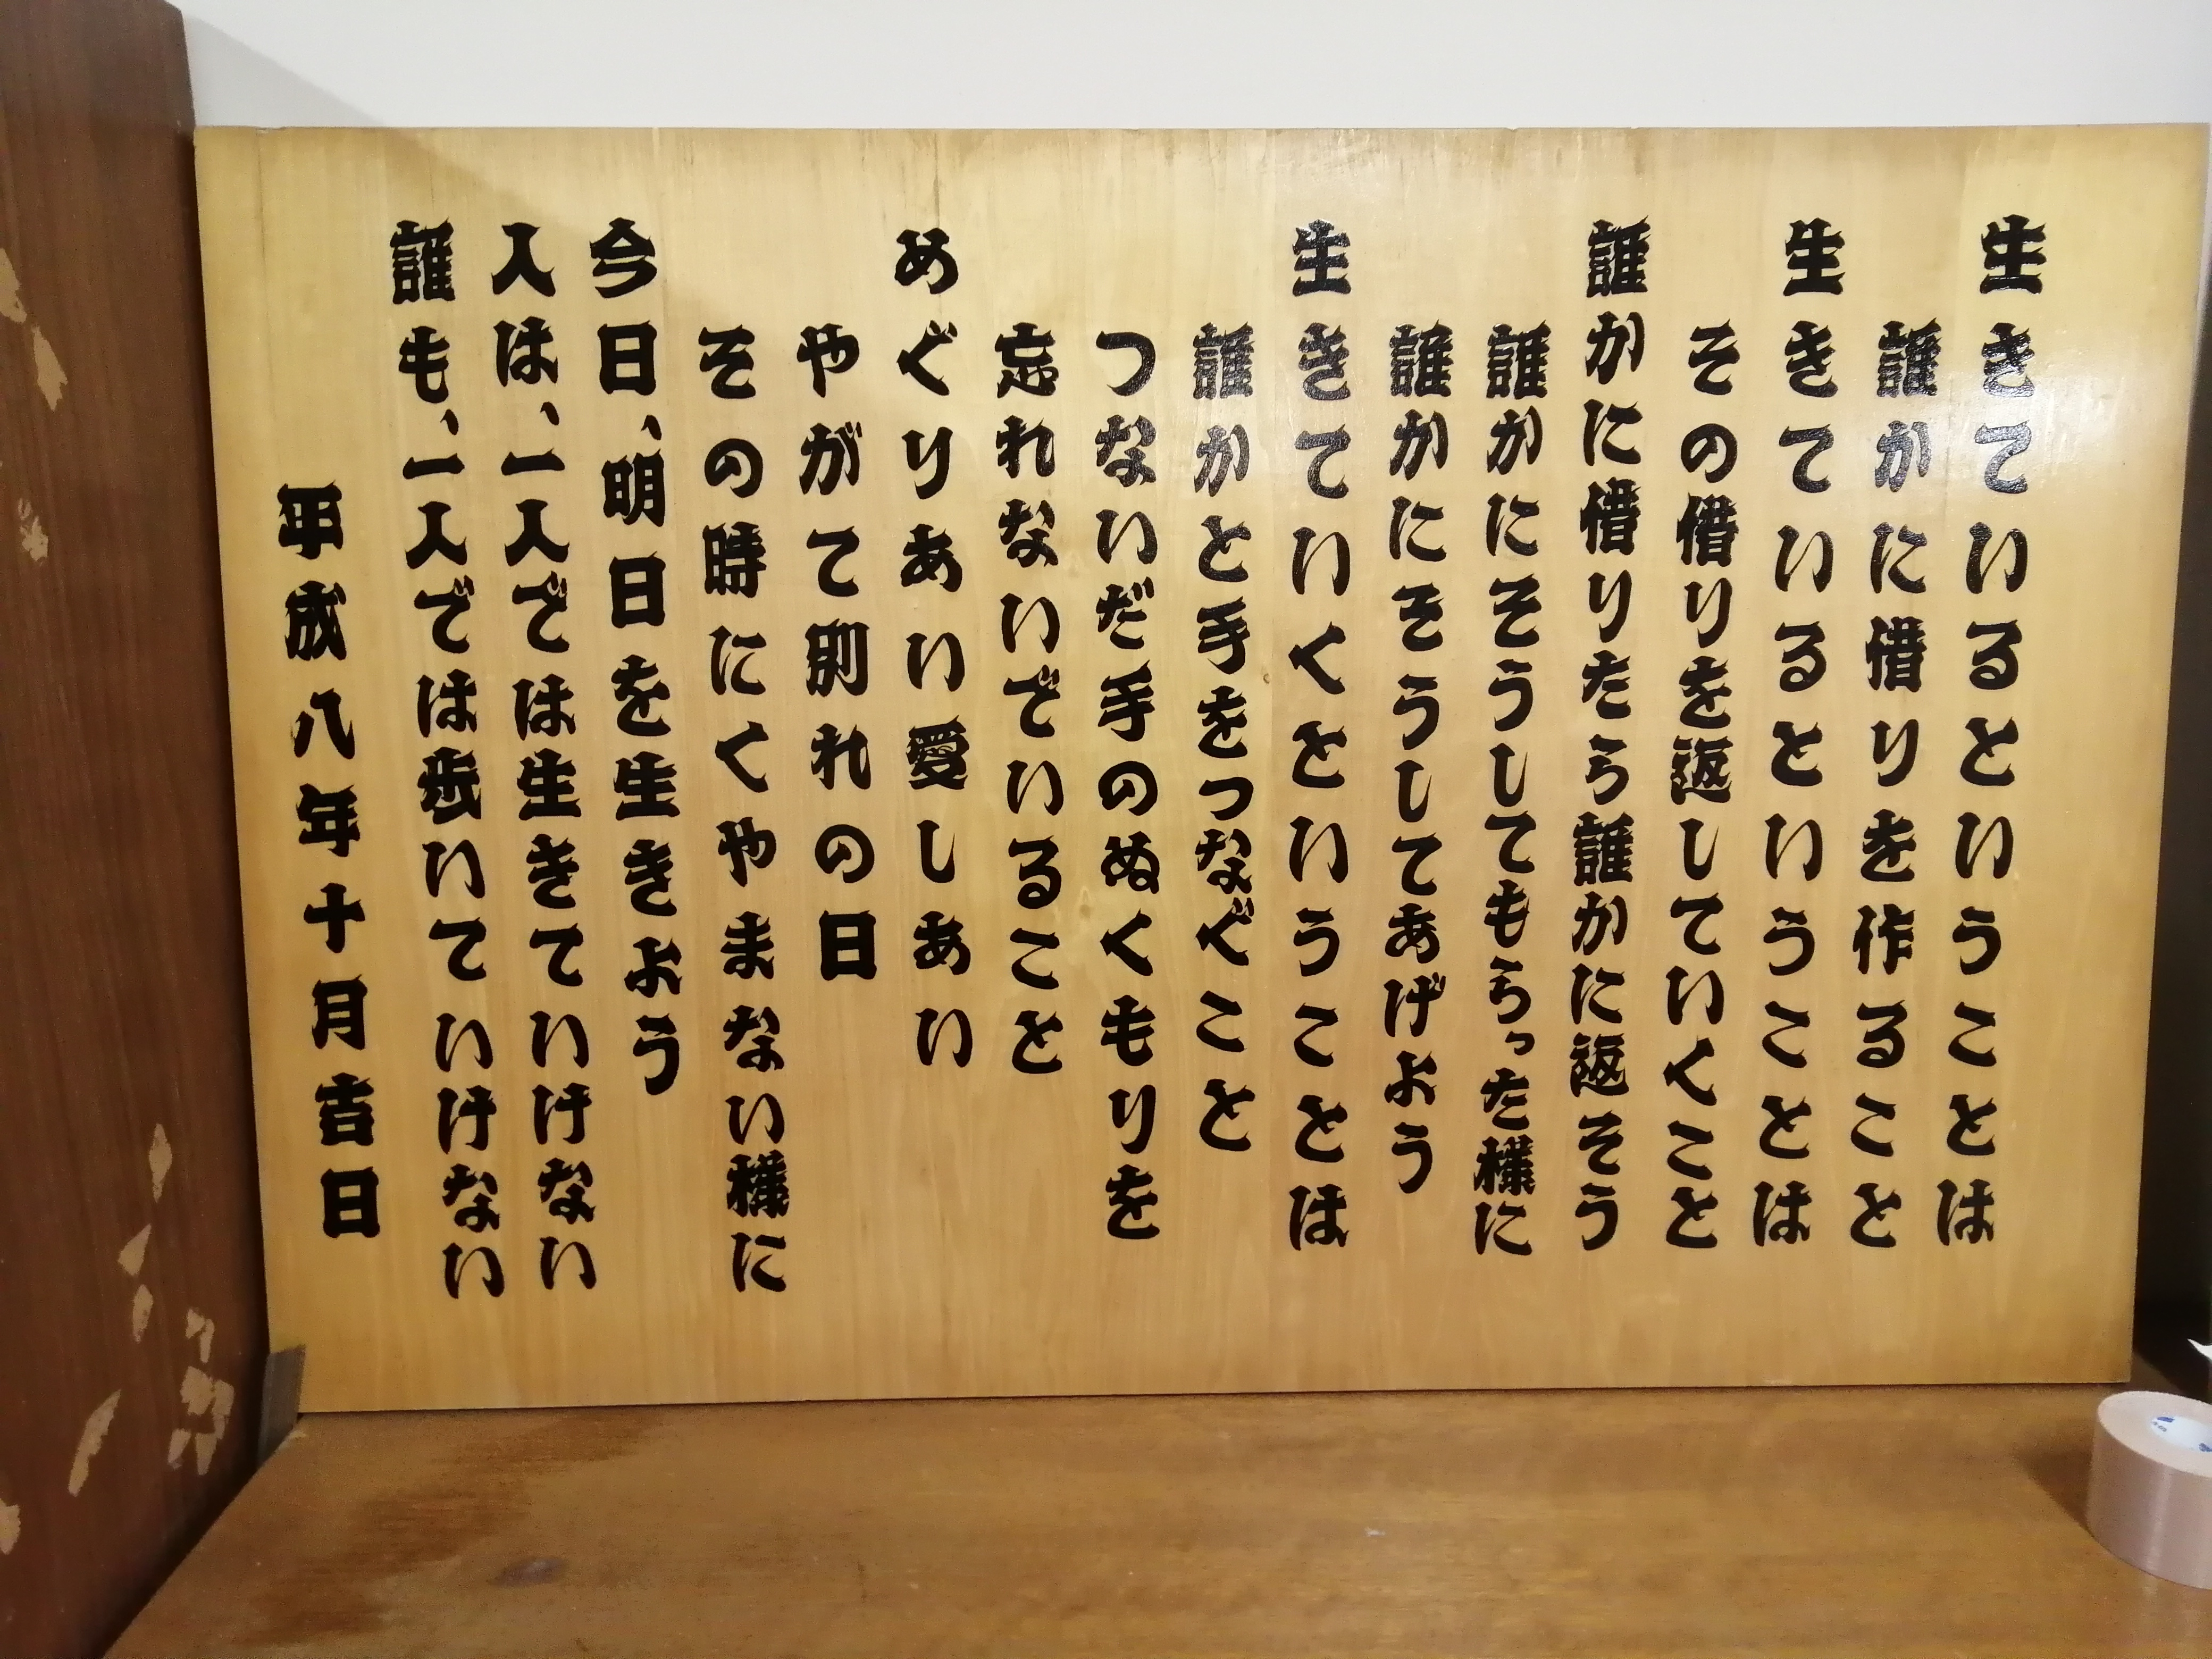 生きているということは
誰かに借りを作ること
生きているということは
その借りを返していくこと
誰かに借りたら誰かに返そう
誰かにそうしてもらった様に
誰かにそうしてあげよう
生きていくということは
誰かと手をつなぐこと
つないだ手のぬくもりを
忘れないでいること
めぐりあい愛しあい
やがて別れの日
その時にくやまない様に
今日、明日を生きよう
人は、一人では生きていけない
誰も、一人では歩いていけない
平成八年十月吉日